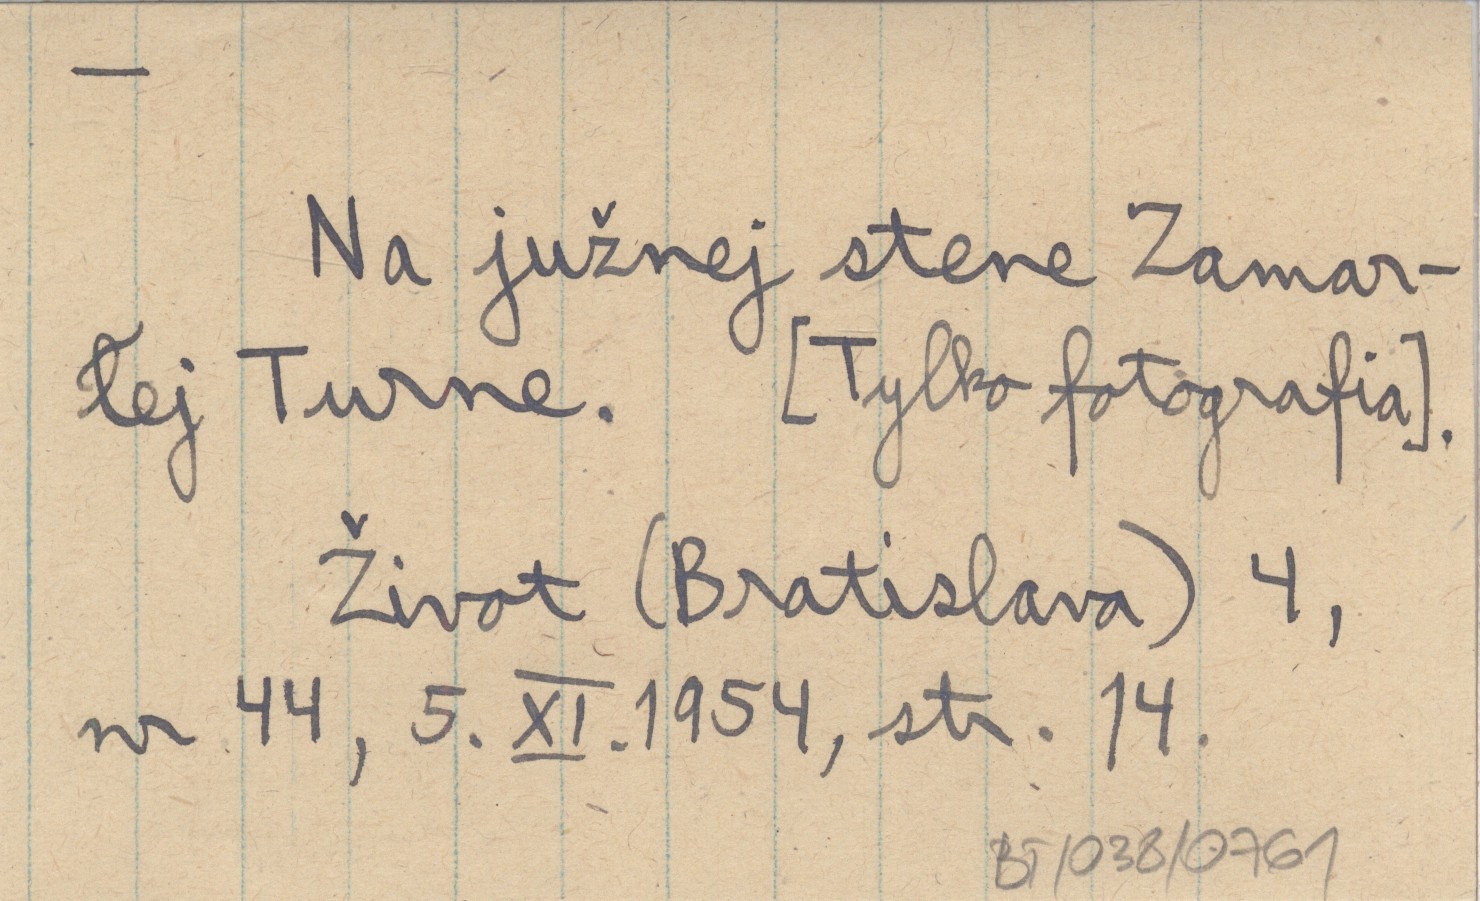 —
Na južnej stene Zamar-
łej Turne. [Tylko fotografia].
Život (Bratislava) 4,
nr 44, 5. XI. 1954, str. 14.
BT/038/0761